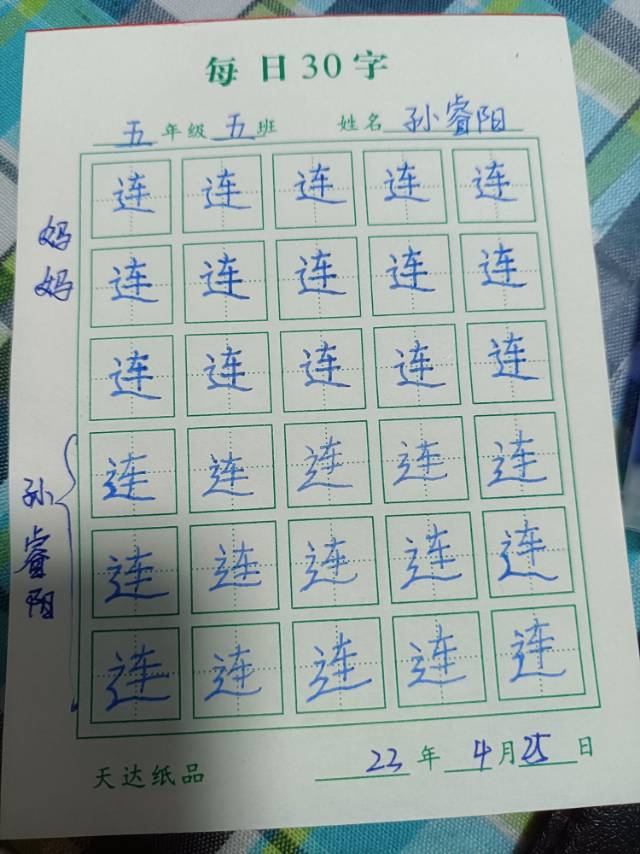 每日30字
五年级五班 姓名 孙睿阳
妈妈
连 连 连 连 连
连 连 连 连 连
连 连 连 连 连
孙睿阳
连 连 连 连 连
连 连 连 连 连
连 连 连 连 连
天达纸品 22年4月25日